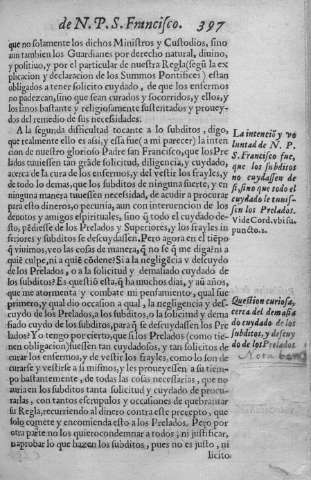 de N. P. S. Francisco. 397
que no solamente los dichos Ministros y Custodios, sino
aun tambien los Guardianes por derecho natural, diuino,
y positiuo, y por el particular de nuestra Regla (segũ la ex
plicacion y declaracion de los Summos Pontifices) estan
obligados a tener solicito cuydado, de que los enfermos
no padezcan, sino que sean curados y socorridos, y ellos, y
los sanos bastante y religiosamente sustentados y proueydos
del remedio de sus necesidades.
A la segunda dificultad tocante a lo subditos, digo,
que realmente ello es assi, y essa fue (a mi parecer) la inten
cion de nuestro glorioso Padre san Francisco, que los Pre
lados tuuiessen tan grãde solicitud, diligencia, y cuydado,
acerca de la cura de los enfermos, y del vestir los frayles, y
de todo lo demas, que los subditos de ninguna suerte, y en
ninguna manera tuuiessen necessidad, de acudir a procurar
para esto dinero, o pecunia, aun con interuencion de los
deuotos y amigos espirituales, sino q̃ todo el cuydado de-
sto, pẽdiesse de los Prelados y Superiores, y los frayles in
feriores y subditos se descuydassen. Pero agora en el tiẽpo
q̃ viuimos, veo las cosas de manera, q̃ no se q̃ me diga, ni a
quiẽ culpe, ni a quiẽ cõdene? Si a la negligẽcia y descuydo
de los Prelados, o a la solicitud y demasiado cuydado de
los subditos? Es questiõ esta, q̃ ha muchos dias, y aũ años,
que me atormenta y combate mi pensamiento, qual fue
primero, y qual dio occasion a qual, la negligencia y des-
cuydo de los Prelados, a los subditos, o la solicitud y dema
siado cuydo de los subditos, para q̃ se descuydassen los Pre
lados? Yo tengo por cierto, que si los Prelados (como tie-
nen obligacion) fuessen tan cuydadosos, y tan solicitos de
curar los enfermos, y de vestir los frayles, como lo son de
curarse y vestirse a si mismos, y les proueyessen a su tiem-
po bastantemente, de todas las cosas necessarias, que no
auria en los subditos tanta solicitud y cuydado de procu-
rarlas, con tantos escrupulos y occasiones de quebrantar
su Regla, recurriendo al dinero contra este precepto, que
solo comete y encomienda esto a los Prelados. Pero por
otra parte no los quiero condemnar a todos, ni justificar,
ni aprobar lo que hazen los subditos, pues no es justo, ni
licito
La intenciõ y vo
luntad de N. P.
S. Francisco fue,
que los subditos
no cuydassen de
si, sino que todo el
cuydado le tuuies-
sin los Prelados.
Vide Cord. vbi su.
puncto. 2.
Question curiosa,
cerca del demasia
do cuydado de los
subditos, y descuy
do de los Prelados.
Nota bene